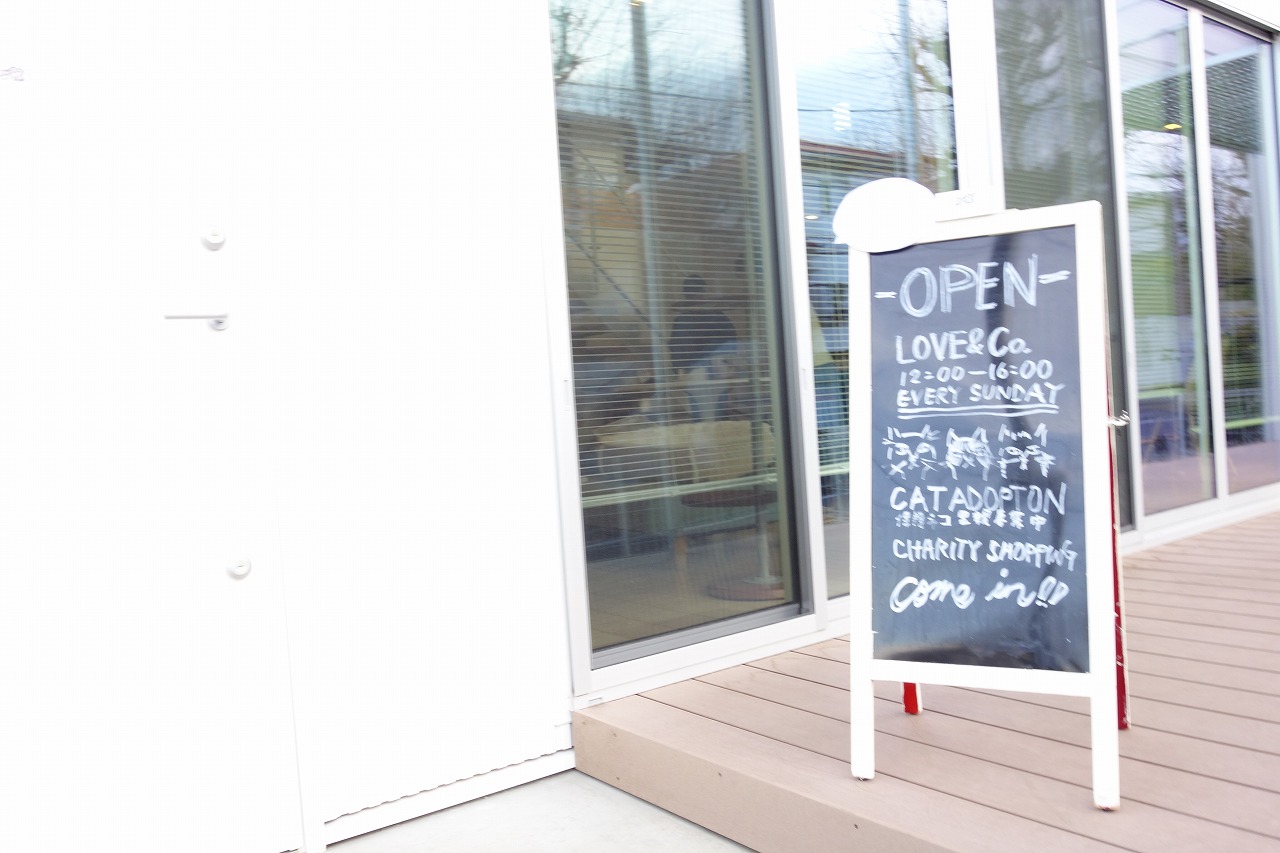 -OPEN-
LOVE&Co.
12:00-16:00
EVERY SUNDAY
CATADOPTON
CHARITY SHOPPING
come in!!